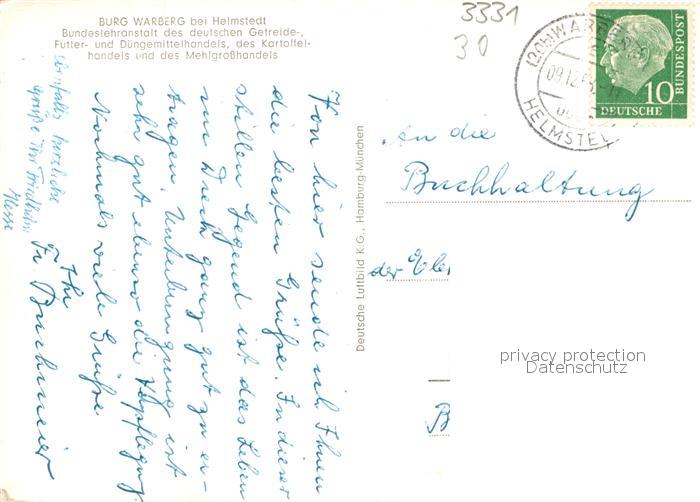 BURG WARBERG bei Helmstedt
Bundeslehranstalt des deutschen Getreide-,
Futter- und Düngemittelhandels, des Kartoffel-
handels und des Mehlgroßhandels
3331
30
(20b) WARBERG
09.12.
HELMSTEDT
10
DEUTSCHE
BUNDESPOST
An die
Buchhaltung
der
B
privacy protection
Datenschutz
Deutsche Luftbild K.G., Hamburg-München
Von hier sende ich Ihnen
die besten Grüße. In dieser
stillen Gegend ist das Leben
im Dreck ganz gut zu er-
tragen. Unterbringung ist
sehr gut ebenso die Verpflegung
Nochmals viele Grüße
Ihr
Fr. Buchmeier
herzliche
Grüße Ihr Friedhelm
Hesse